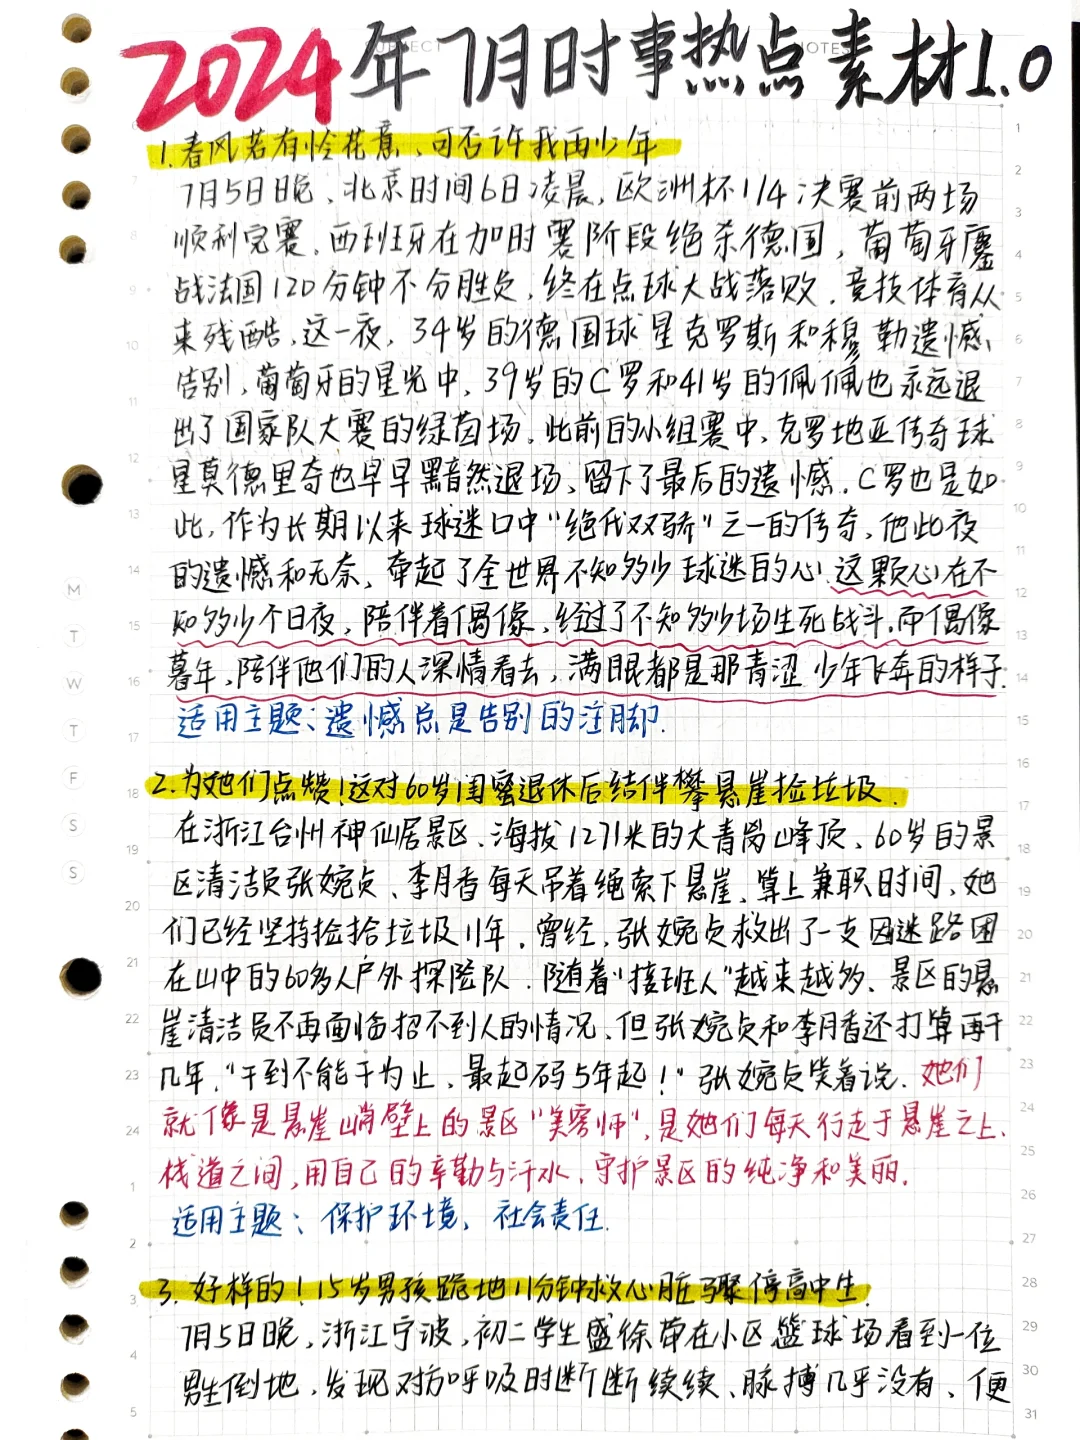 SUBJECT
NOTES
2024年7月时事热点素材1.0
1.春风若有怜花意、可否许我再少年
7月5日晚、北京时间6日凌晨,欧洲杯1/4决赛前两场
顺利完赛、西班牙在加时赛阶段绝杀德国,葡萄牙鏖
战法国120分钟不分胜负,终在点球大战落败.竞技体育从
来残酷、这一夜,34岁的德国球星克罗斯和穆勒遗憾
告别,葡萄牙的星光中,39岁的C罗和41岁的佩佩也永远退
出了国家队大赛的绿茵场、此前的小组赛中、克罗地亚传奇球
星莫德里奇也早早黯然退场、留下了最后的遗憾.C罗也是如
此,作为长期以来球迷口中"绝代双骄"之一的传奇,他此夜
的遗憾和无奈,牵起了全世界不知多少球迷的心.这颗心在不
知多少个日夜,陪伴着偶像、经过了不知多少场生死战斗.而偶像
暮年,陪伴他们的人深情看去,满眼都是那青涩少年飞奔的样子.
适用主题:遗憾总是告别的注脚.
2.为她们点赞!这对60岁闺蜜退休后结伴攀悬崖捡垃圾.
在浙江台州神仙居景区、海拔1271米的大青岗峰顶、60岁的景
区清洁员张婉贞、李月香每天吊着绳索下悬崖,算上兼职时间,她
们已经坚持捡拾垃圾11年.曾经,张婉贞救出了一支因迷路困
在山中的60多人户外探险队.随着"接班人"越来越多、景区的悬
崖清洁员不再面临招不到人的情况、但张婉贞和李月香还打算再干
几年."干到不能干为止、最起码5年起!"张婉贞笑着说.她们
就像是悬崖峭壁上的景区"美容师",是她们每天行走于悬崖之上、
栈道之间,用自己的辛勤与汗水、守护景区的纯净和美丽.
适用主题:保护环境,社会责任.
3.好样的!15岁男孩跪地11分钟救心脏骤停高中生.
7月5日晚,浙江宁波,初二学生盛徐荣在小区篮球场看到一位
男生倒地、发现对方呼吸时断断续续、脉搏几乎没有、便